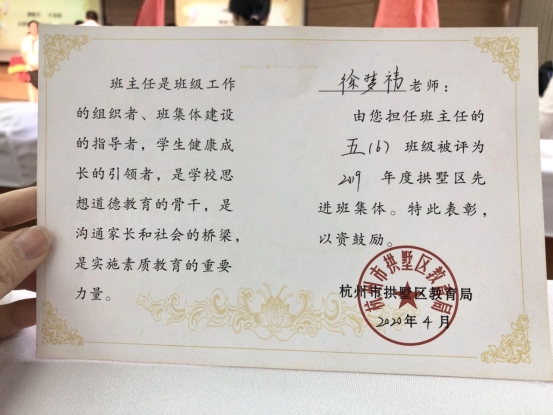 班主任是班级工作
的组织者、班集体建设
的指导者，学生健康成
长的引领者，是学校思
想道德教育的骨干，是
沟通家长和社会的桥梁，
是实施素质教育的重要
力量。
徐梦祎老师：
由您担任班主任的
五(6)班级被评为
2019年度拱墅区先
进班集体。特此表彰，
以资鼓励。
杭州市拱墅区教育局
2020年4月
杭州市拱墅区教育局